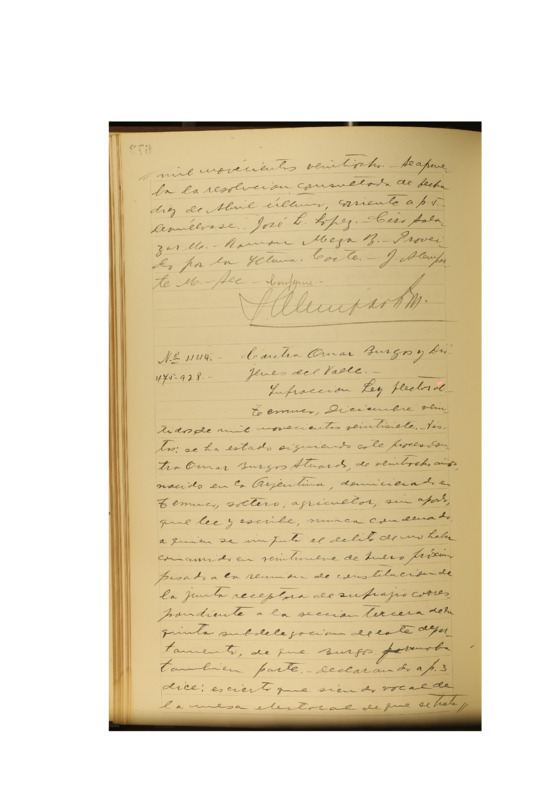 mil novecientos veintiocho. Se aprue-
ba la resolución consultada de fecha
diez de Abril último, corriente a p. 5.
Devuélvase. José L. López. Ciro Sala-
zar M. Roman Mega B. Provei-
do por la Iltma. Corte. J Alempar-
te M. Sec Conforme.
N.º 1114.- Contra Omar Burgos y Dió-
475-928.- jenes del Valle.-
Infraccion Ley Electoral.
Temuco, Diciembre vein
tidos de mil novecientos veintisiete. Vis-
tos: se ha estado siguiendo este proceso con-
tra Omar Burgos, de veintiocho años,
nacido en la Argentina, domiciliado en
Temuco, soltero, agricultor, sin apodo,
que lee y escribe, nunca condenado
a quien se imputa el delito de no haber
concurrido en veintinueve de Enero próximo
pasado a la reunion de constitucion de
la junta receptora de sufrajios corres
pondiente a la seccion tercera de la
quinta subdelegacion de este depar-
tamento, de que Burgos formaba
tambien parte.- Declarando a p. 3
dice: es cierto que siendo vocal de
la mesa electoral de que se trata